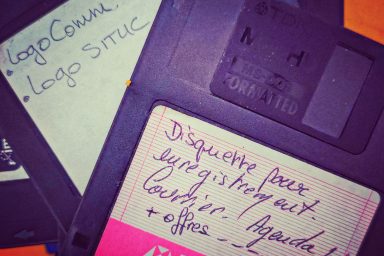 LogoComm.
Logo SITUC
TDK
FORMATTED
Disquette pour
enregistrement.
Courrier. Agenda!
+ offres ---